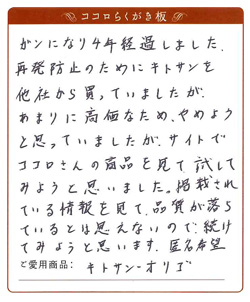 ココロらくがき板
ガンになり4年経過しました。
再発防止のためにキトサンを
他社から買っていましたが、
あまりに高価なため、やめよう
と思っていましたが、サイトで
ココロさんの商品を見て試して
みようと思いました。掲載され
ている情報を見て、品質が落ち
ているとは思えないので、続け
てみようと思います。匿名希望
ご愛用商品: キトサン-オリゴ